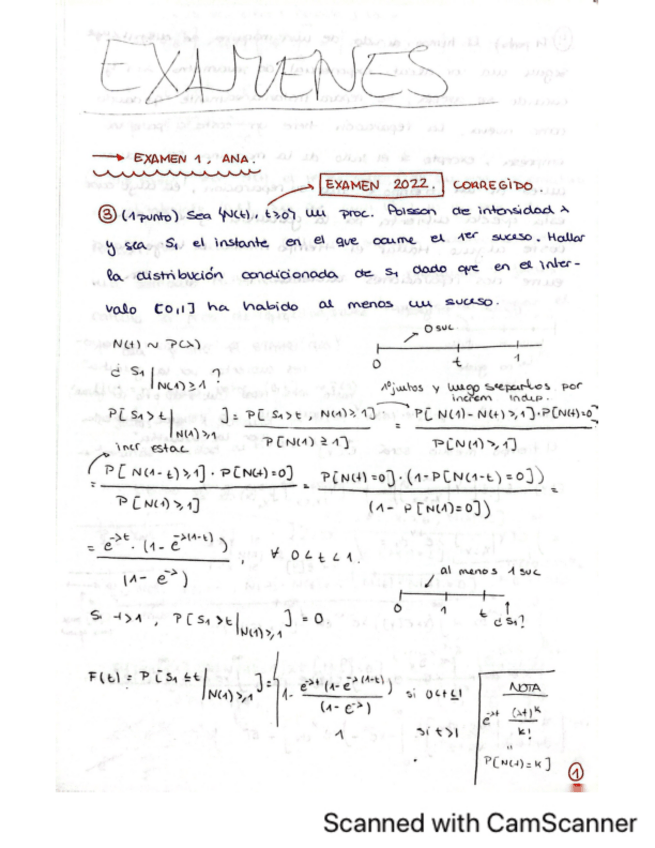 EXAMENES
→ EXAMEN 1, ANA.
EXAMEN 2022. CORREGIDO.
③ (1 punto) Sea {N(t), t≥0} un proc. Poisson de intensidad λ
y sea S₁ el instante en el que ocurre el 1er suceso. Hallar
la distribución condicionada de S₁ dado que en el inter-
valo [0,1] ha habido al menos un suceso.
N(t) ~ P(λ)
0 suc
0 t 1
¿ S₁ | N(1)≥1 ?
1º juntos y luego separarlos por
increm indep.
P[S₁>t | N(1)≥1] = P[S₁>t, N(1)≥1] / P[N(1)≥1] = P[N(1)-N(t)≥1]·P[N(t)=0] / P[N(1)≥1]
incr estac
= P[N(1-t)≥1]·P[N(t)=0] / P[N(1)≥1] = P[N(t)=0]·(1-P[N(1-t)=0]) / (1-P[N(1)=0]) =
= e^-λt · (1-e^-λ(1-t)) / (1-e^-λ) , ∀ 0<t<1.
al menos 1 suc
0 1 t
¿S₁?
Si t>1, P[S₁>t | N(1)≥1] = 0
F(t) = P[S₁≤t | N(1)≥1] = { 1 - e^-λt (1-e^-λ(1-t)) / (1-e^-λ) si 0<t≤1
1 si t>1
NOTA
e^-λt (λt)^k / k!
"
P[N(t)=k]
①
Scanned with CamScanner